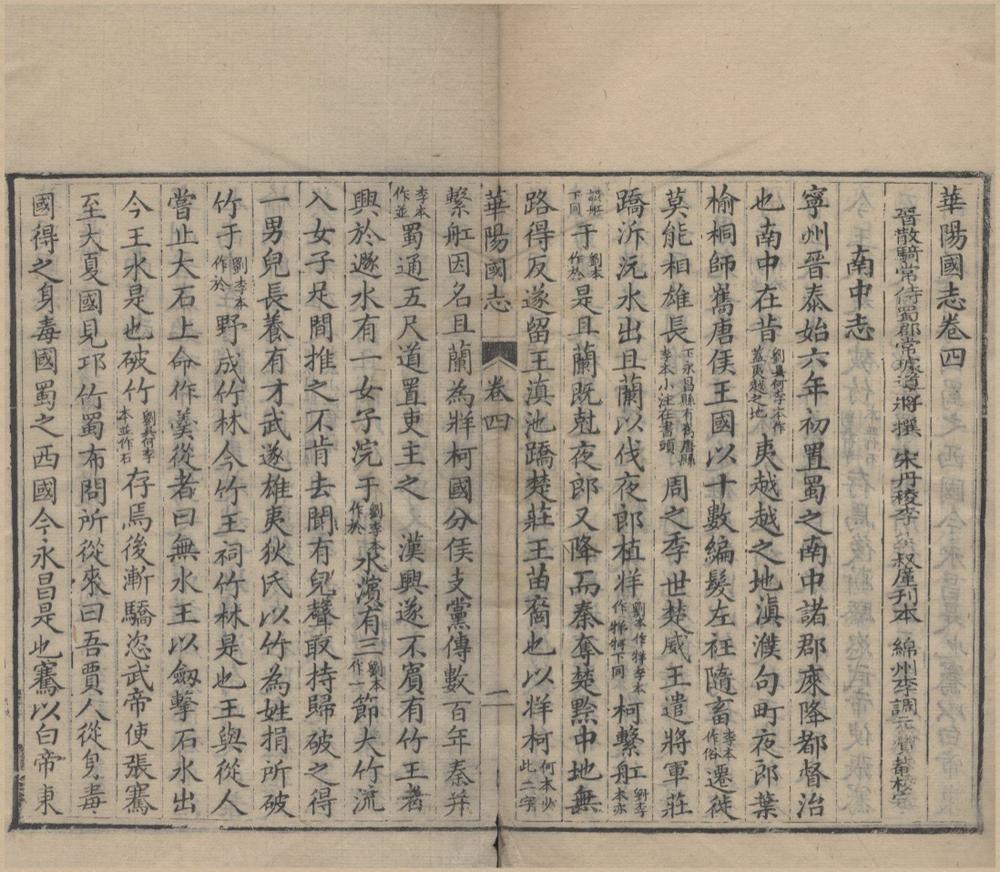 華陽國志卷四
晉散騎常侍蜀郡常璩道將撰 宋丹稜李𡌴叔厪刊本 綿州李調元贊菴校定
南中志
寧州晉泰始六年初置蜀之南中諸郡庲降都督治
也南中在昔劉吳何李本作蓋夷越之地夷越越之地滇濮句町夜郎葉
榆桐師嶲唐侯王國以十數編髮左衽隨畜李本作俗遷徙
莫能相雄長下永昌縣有嶲唐縣李本小注在書頭周之季世楚威王遣將軍莊
蹻泝沅水出且蘭以伐夜郎植牂劉本作牂李本作牁下同柯繫舡劉李本亦
誤舡下同于劉本作於是且蘭旣尅夜郎又降而秦奪楚黔中地無
路得反遂留王滇池蹻楚莊王苗裔也以牂柯何本少此二字
華陽國志 卷四 一
繫舡因名且蘭為牂柯國分侯支黨傳數百年秦幷
李本作並蜀通五尺道置吏主之 漢興遂不賓有竹王者
興於遯水有一女子浣于劉李本作於水濱有三劉本作一節大竹流
入女子足間推之不肯去聞有兒聲取持歸破之得
一男兒長養有才武遂雄夷狄氏以竹為姓捐所破
竹于劉李本作於野成竹林今竹王祠竹林是也王與從人
嘗止大石上命作羹從者曰無水王以劔擊石水出
今王水是也破竹劉吳何李本並作石存焉後漸驕恣武帝使張騫
至大夏國見邛竹蜀布問所從來曰吾賈人從身毒
國得之身毒國蜀之西國今永昌是也騫以白帝東